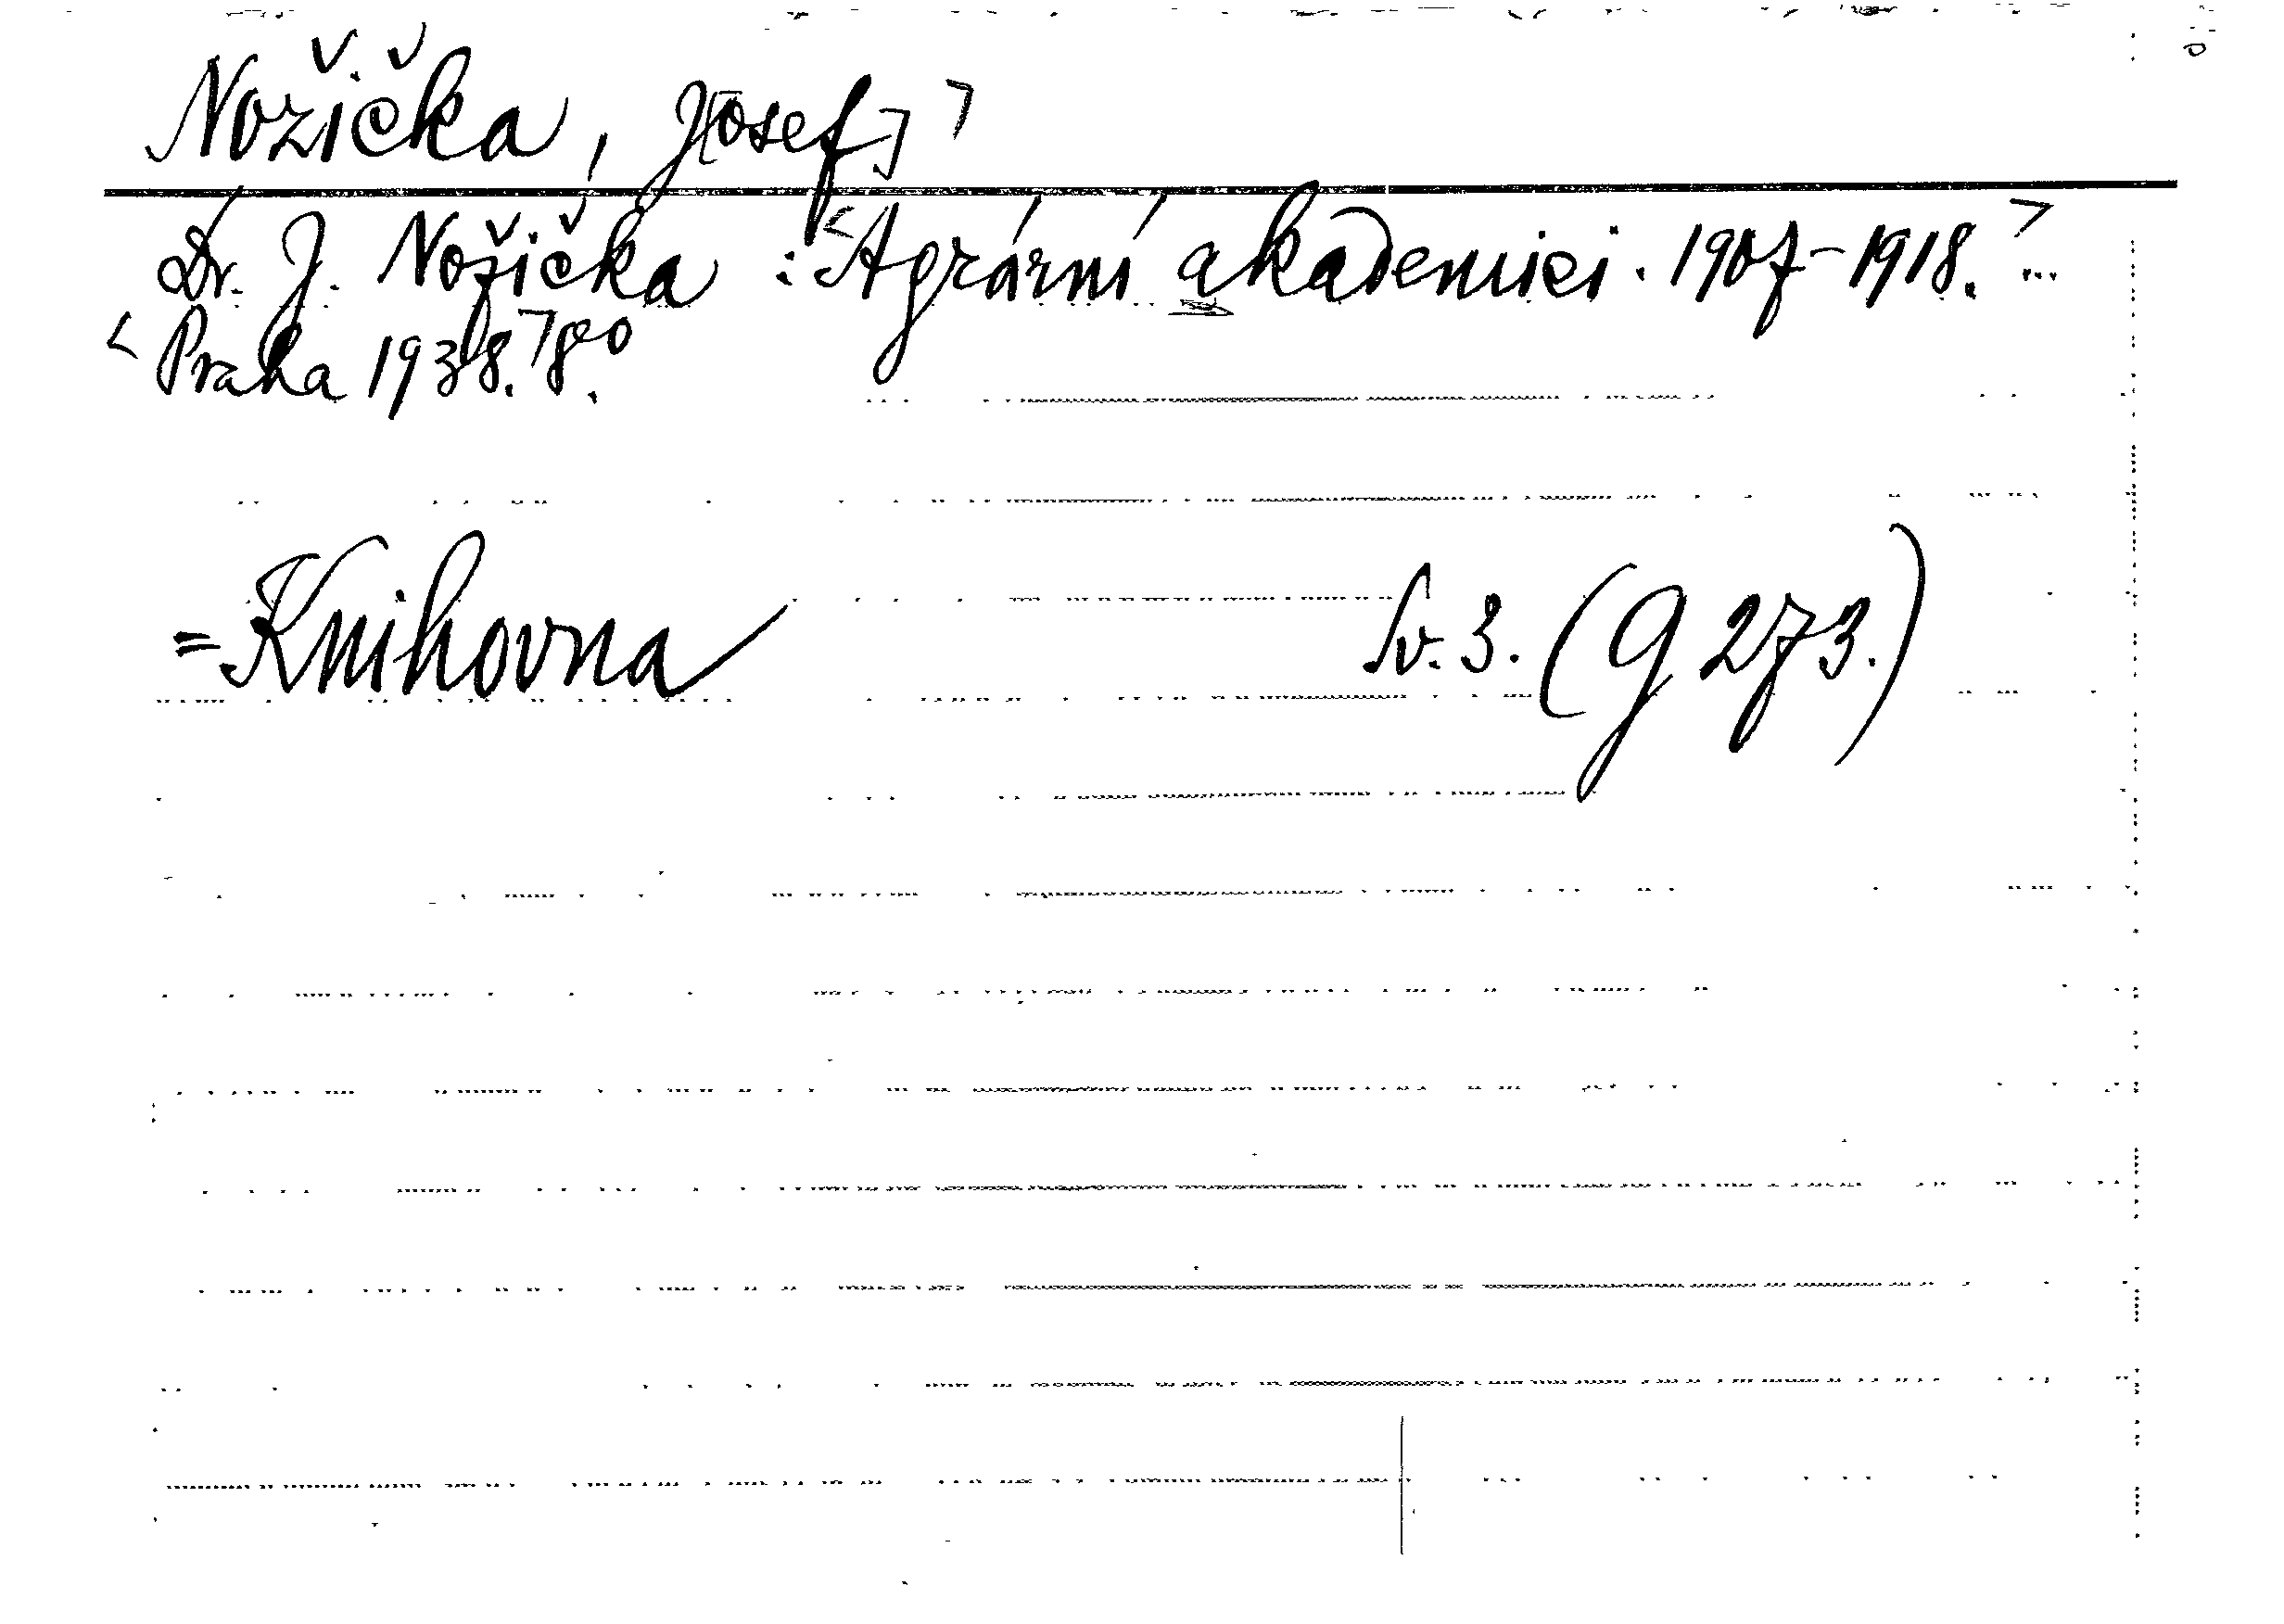 Nožička, J[osef]>
Dr. J. Nožička : <Agrární akademici. 1907-1918.> ...
<Praha 1938.> 8°.
=Knihovna Sv. 3. (g 273.)